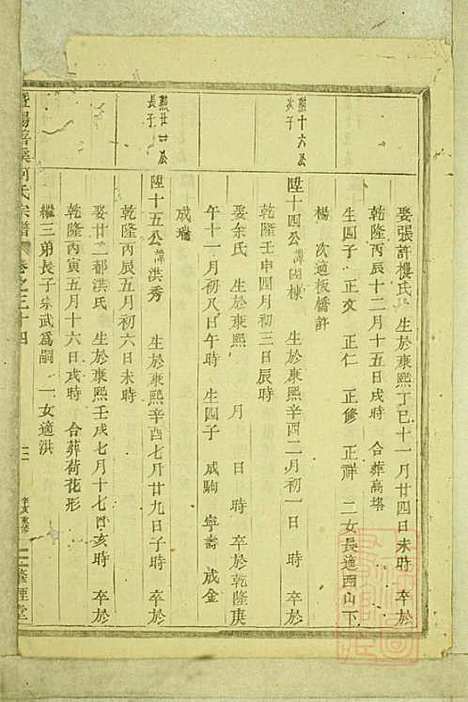 娶張許樓氏 生於康熙丁巳十一月廿四日未時 卒於
乾隆丙辰十二月十五日戌時 合葬高塔
生四子 正文 正仁 正修 正祥 二女長適西山下
楊 次適板橋許
熙十六公
次子
陞十四公諱國棟 生於康熙辛酉二月初一日 時 卒於
乾隆壬申四月初三日辰時
娶余氏 生於康熙 月 日 時 卒於乾隆庚
午十一月初八日午時 生四子 成駒 寧壽 成金
成瑞
熙廿口公
長子
陞十五公諱洪秀 生於康熙辛酉七月廿九日子時 卒於
乾隆丙辰五月初六日未時
娶廿二都洪氏 生於康熙壬戌七月十七日亥時 卒於
乾隆丙寅五月十六日戌時 合葬荷花形
繼三弟長子宗武為嗣 一女適洪
暨陽 溪何氏宗譜 卷之三十四